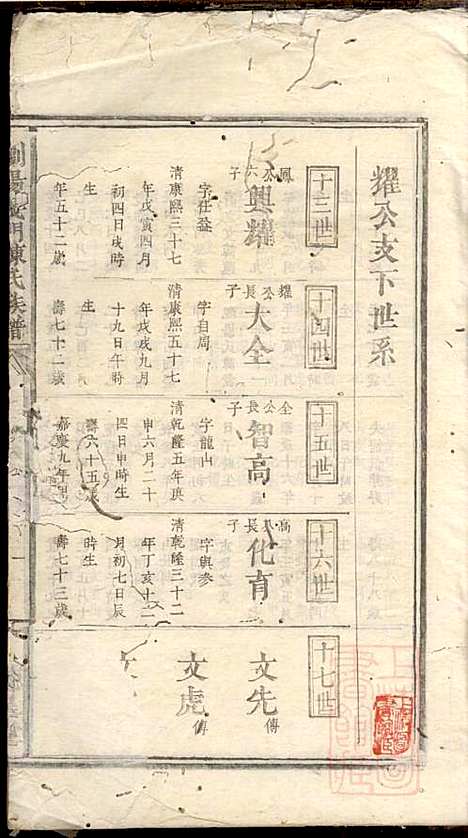 耀公支下世系
十三世
鳳公六子
興耀
字仕益
清康熙三十七
年戊寅四月
初四日戌時
生
年五十二歲
十四世
耀公長子
大全
字自周
清康熙五十七
年戊戌九月
十九日午時
生
壽七十二歲
十五世
全公長子
智高
字龍山
清乾隆五年庚
申六月二十
四日申時生
壽六十五歲
嘉慶九年
十六世
高公長子
化育
字與參
清乾隆三十二
年丁亥十二
月初七日辰
時生
壽七十三歲
十七世
文先傳
文虎傳
文
門陳氏族譜